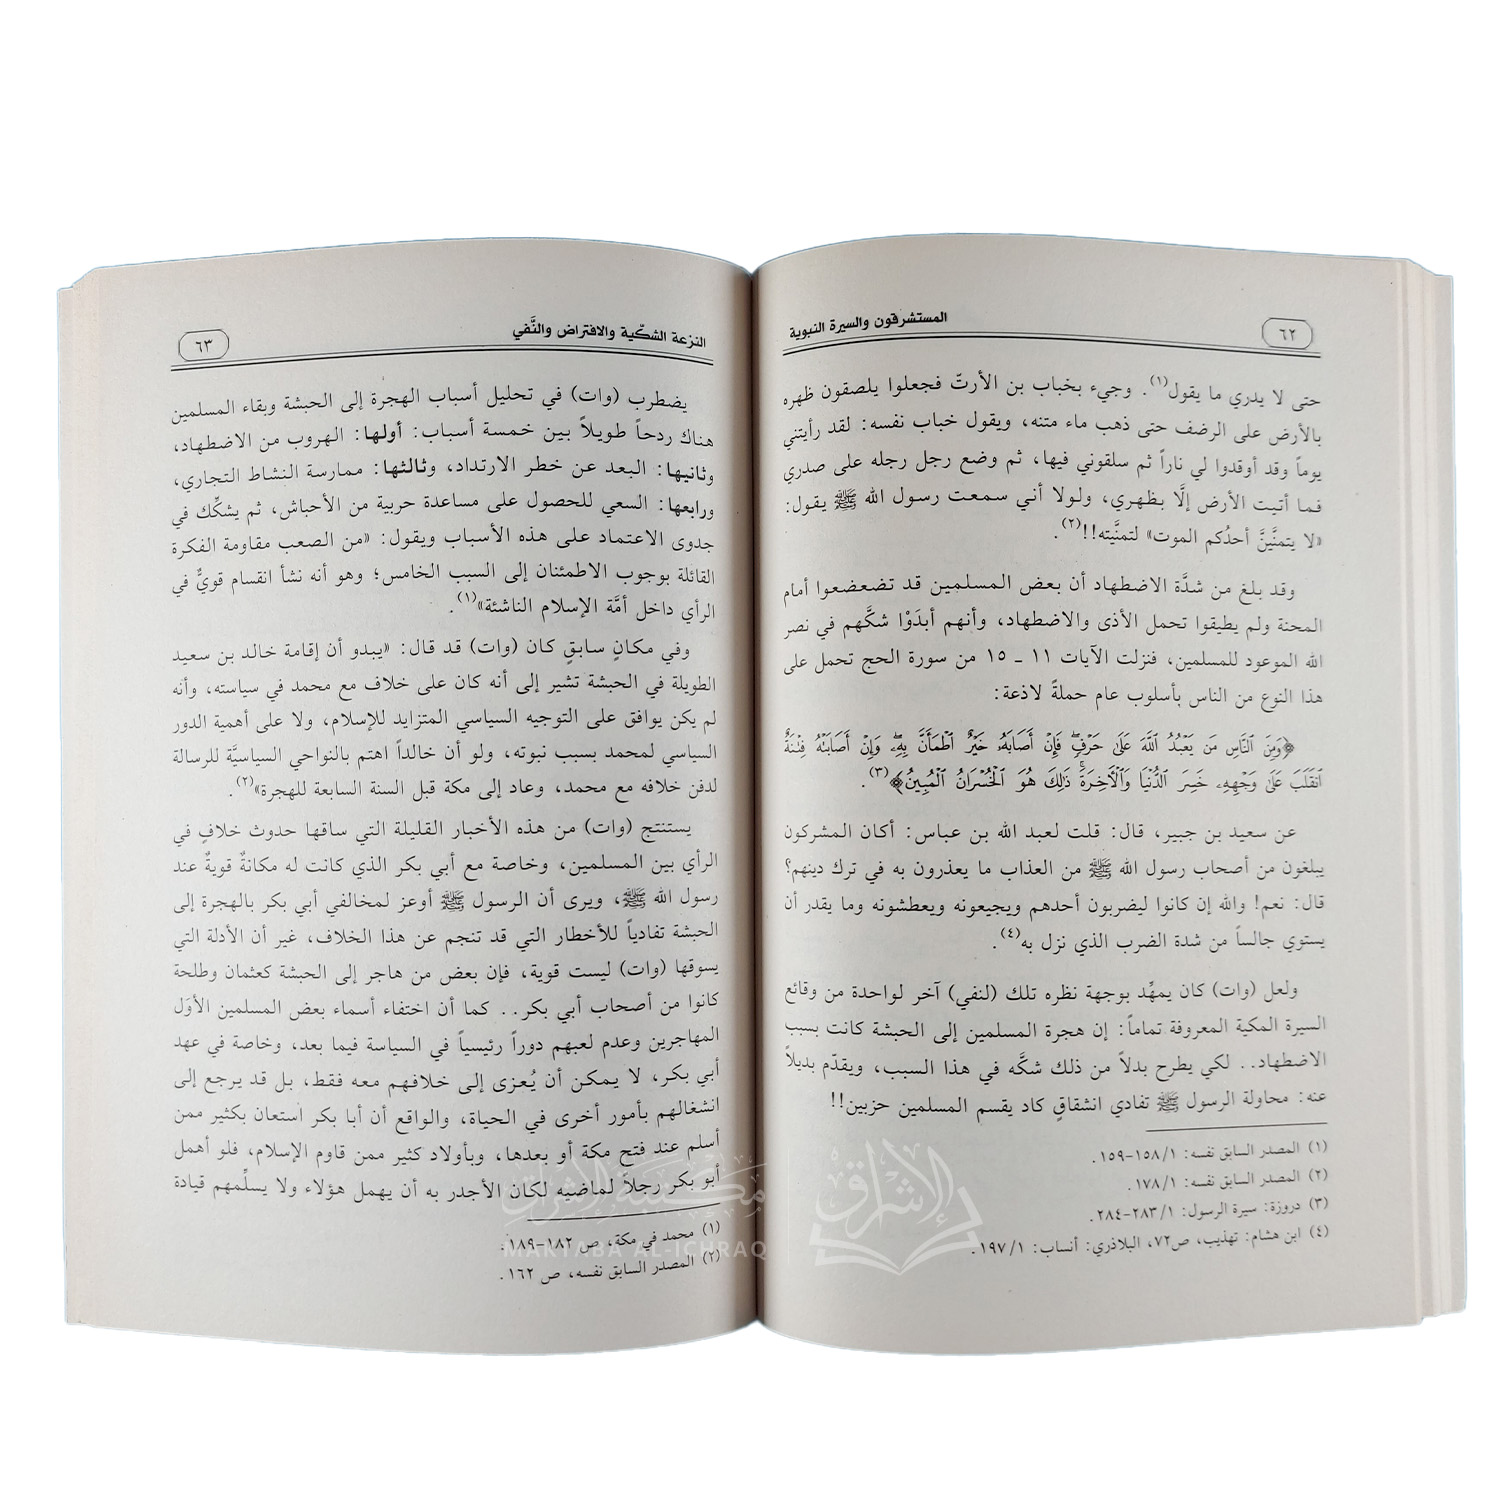 ٦٢
المستشرقون والسيرة النبوية
حتى لا يدري ما يقول(١). وجيء بخباب بن الأرتّ فجعلوا يلصقون ظهره
بالأرض على الرضف حتى ذهب ماء متنه، ويقول خباب نفسه: لقد رأيتني
يوماً وقد أوقدوا لي ناراً ثم سلقوني فيها، ثم وضع رجل رجله على صدري
فما أتيت الأرض إلَّا بظهري، ولولا أني سمعت رسول الله ﷺ يقول:
«لا يتمنَّينَّ أحدُكم الموت» لتمنَّيته!!(٢).
وقد بلغ من شدَّة الاضطهاد أن بعض المسلمين قد تضعضعوا أمام
المحنة ولم يطيقوا تحمل الأذى والاضطهاد، وأنهم أبدَوْا شكَّهم في نصر
الله الموعود للمسلمين، فنزلت الآيات ١١ ـ ١٥ من سورة الحج تحمل على
هذا النوع من الناس بأسلوب عام حملةً لاذعة:
﴿وَمِنَ ٱلنَّاسِ مَن يَعۡبُدُ ٱللَّهَ عَلَىٰ حَرۡفٖۖ فَإِنۡ أَصَابَهُۥ خَيۡرٌ ٱطۡمَأَنَّ بِهِۦۖ وَإِنۡ أَصَابَتۡهُ فِتۡنَةٌ
ٱنقَلَبَ عَلَىٰ وَجۡهِهِۦ خَسِرَ ٱلدُّنۡيَا وَٱلۡأٓخِرَةَۚ ذَٰلِكَ هُوَ ٱلۡخُسۡرَانُ ٱلۡمُبِينُ﴾(٣).
عن سعيد بن جبير، قال: قلت لعبد الله بن عباس: أكان المشركون
يبلغون من أصحاب رسول الله ﷺ من العذاب ما يعذرون به في ترك دينهم؟
قال: نعم! والله إن كانوا ليضربون أحدهم ويجيعونه ويعطشونه وما يقدر أن
يستوي جالساً من شدة الضرب الذي نزل به(٤).
ولعل (وات) كان يمهِّد بوجهة نظره تلك (لنفي) آخر لواحدة من وقائع
السيرة المكية المعروفة تماماً: إن هجرة المسلمين إلى الحبشة كانت بسبب
الاضطهاد.. لكي يطرح بدلاً من ذلك شكَّه في هذا السبب، ويقدّم بديلاً
عنه: محاولة الرسول ﷺ تفادي انشقاقٍ كاد يقسم المسلمين حزبين!!
(١) المصدر السابق نفسه: ١/ ١٥٨-١٥٩.
(٢) المصدر السابق نفسه: ١/ ١٧٨.
(٣) دروزة: سيرة الرسول: ١/ ٢٨٣-٢٨٤.
(٤) ابن هشام: تهذيب، ص٧٢، البلاذري: أنساب: ١/ ١٩٧.
النزعة الشكّية والافتراض والنَّفي
٦٣
يضطرب (وات) في تحليل أسباب الهجرة إلى الحبشة وبقاء المسلمين
هناك ردحاً طويلاً بين خمسة أسباب: أولها: الهروب من الاضطهاد،
وثانيها: البعد عن خطر الارتداد، وثالثها: ممارسة النشاط التجاري،
ورابعها: السعي للحصول على مساعدة حربية من الأحباش، ثم يشكِّك في
جدوى الاعتماد على هذه الأسباب ويقول: «من الصعب مقاومة الفكرة
القائلة بوجوب الاطمئنان إلى السبب الخامس؛ وهو أنه نشأ انقسام قويٌّ في
الرأي داخل أمَّة الإسلام الناشئة»(١).
وفي مكانٍ سابقٍ كان (وات) قد قال: «يبدو أن إقامة خالد بن سعيد
الطويلة في الحبشة تشير إلى أنه كان على خلاف مع محمد في سياسته، وأنه
لم يكن يوافق على التوجيه السياسي المتزايد للإسلام، ولا على أهمية الدور
السياسي لمحمد بسبب نبوته، ولو أن خالداً اهتم بالنواحي السياسيَّة للرسالة
لدفن خلافه مع محمد، وعاد إلى مكة قبل السنة السابعة للهجرة»(٢).
يستنتج (وات) من هذه الأخبار القليلة التي ساقها حدوث خلافٍ في
الرأي بين المسلمين، وخاصة مع أبي بكر الذي كانت له مكانةٌ قويةٌ عند
رسول الله ﷺ، ويرى أن الرسول ﷺ أوعز لمخالفي أبي بكر بالهجرة إلى
الحبشة تفادياً للأخطار التي قد تنجم عن هذا الخلاف، غير أن الأدلة التي
يسوقها (وات) ليست قوية، فإن بعض من هاجر إلى الحبشة كعثمان وطلحة
كانوا من أصحاب أبي بكر.. كما أن اختفاء أسماء بعض المسلمين الأوَل
المهاجرين وعدم لعبهم دوراً رئيسياً في السياسة فيما بعد، وخاصة في عهد
أبي بكر، لا يمكن أن يُعزى إلى خلافهم معه فقط، بل قد يرجع إلى
انشغالهم بأمور أخرى في الحياة، والواقع أن أبا بكر استعان بكثير ممن
أسلم عند فتح مكة أو بعدها، وبأولاد كثير ممن قاوم الإسلام، فلو أهمل
أبو بكر رجلاً لماضيه لكان الأجدر به أن يهمل هؤلاء ولا يسلِّمهم قيادة
(١) محمد في مكة، ص ١٨٢-١٨٩.
(٢) المصدر السابق نفسه، ص ١٦٢.
مكتبة الإشراق
MAKTABA AL-ICHRAQ
الإشراق